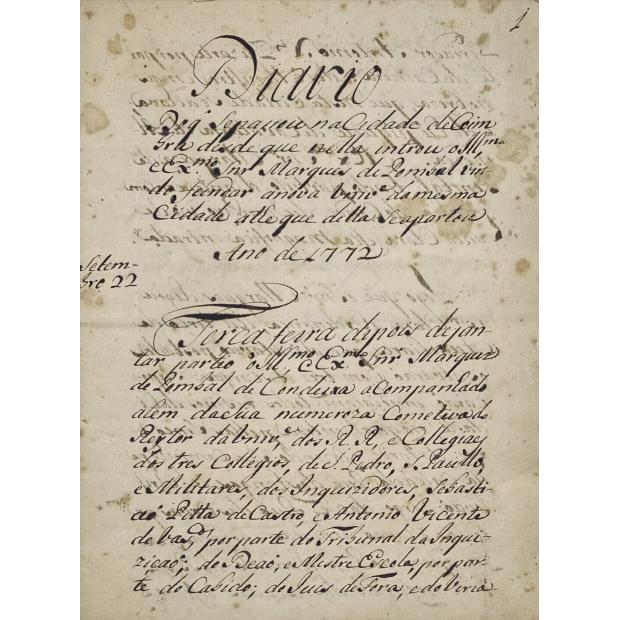 1
Diario
Doq̃ Sepaçou na Cidade de Coim
bra desde que nella introu o Illm̃
e Ex.mo Snr Marques de Pombal vin-
do fundar a nova Univ.e da mesma
Cidade athe que della Seapartou
Ano de 1772
Setem-
bro 22
Terca feira dipois de jan-
tar partio o Ill.mo e Ex.mo Snr Marquez
de Pombal de Condeixa acompanhado
alem da Sua numeroza Cometiva do
Reytor da Univ.e dos R.R, e Collegiaes
dos tres Collegios, de S. Pedro, S. Paullo,
e Militares, dos Inquizidores, Sebasti-
aõ Pitta de Castro, e Antonio Vicente
de Vas.os por parte do Tribunal da Inqui-
ziçaõ; do Deaõ, e Mestre Escola, por par-
te do Cabido; do Juis de Fora, e do Veria-